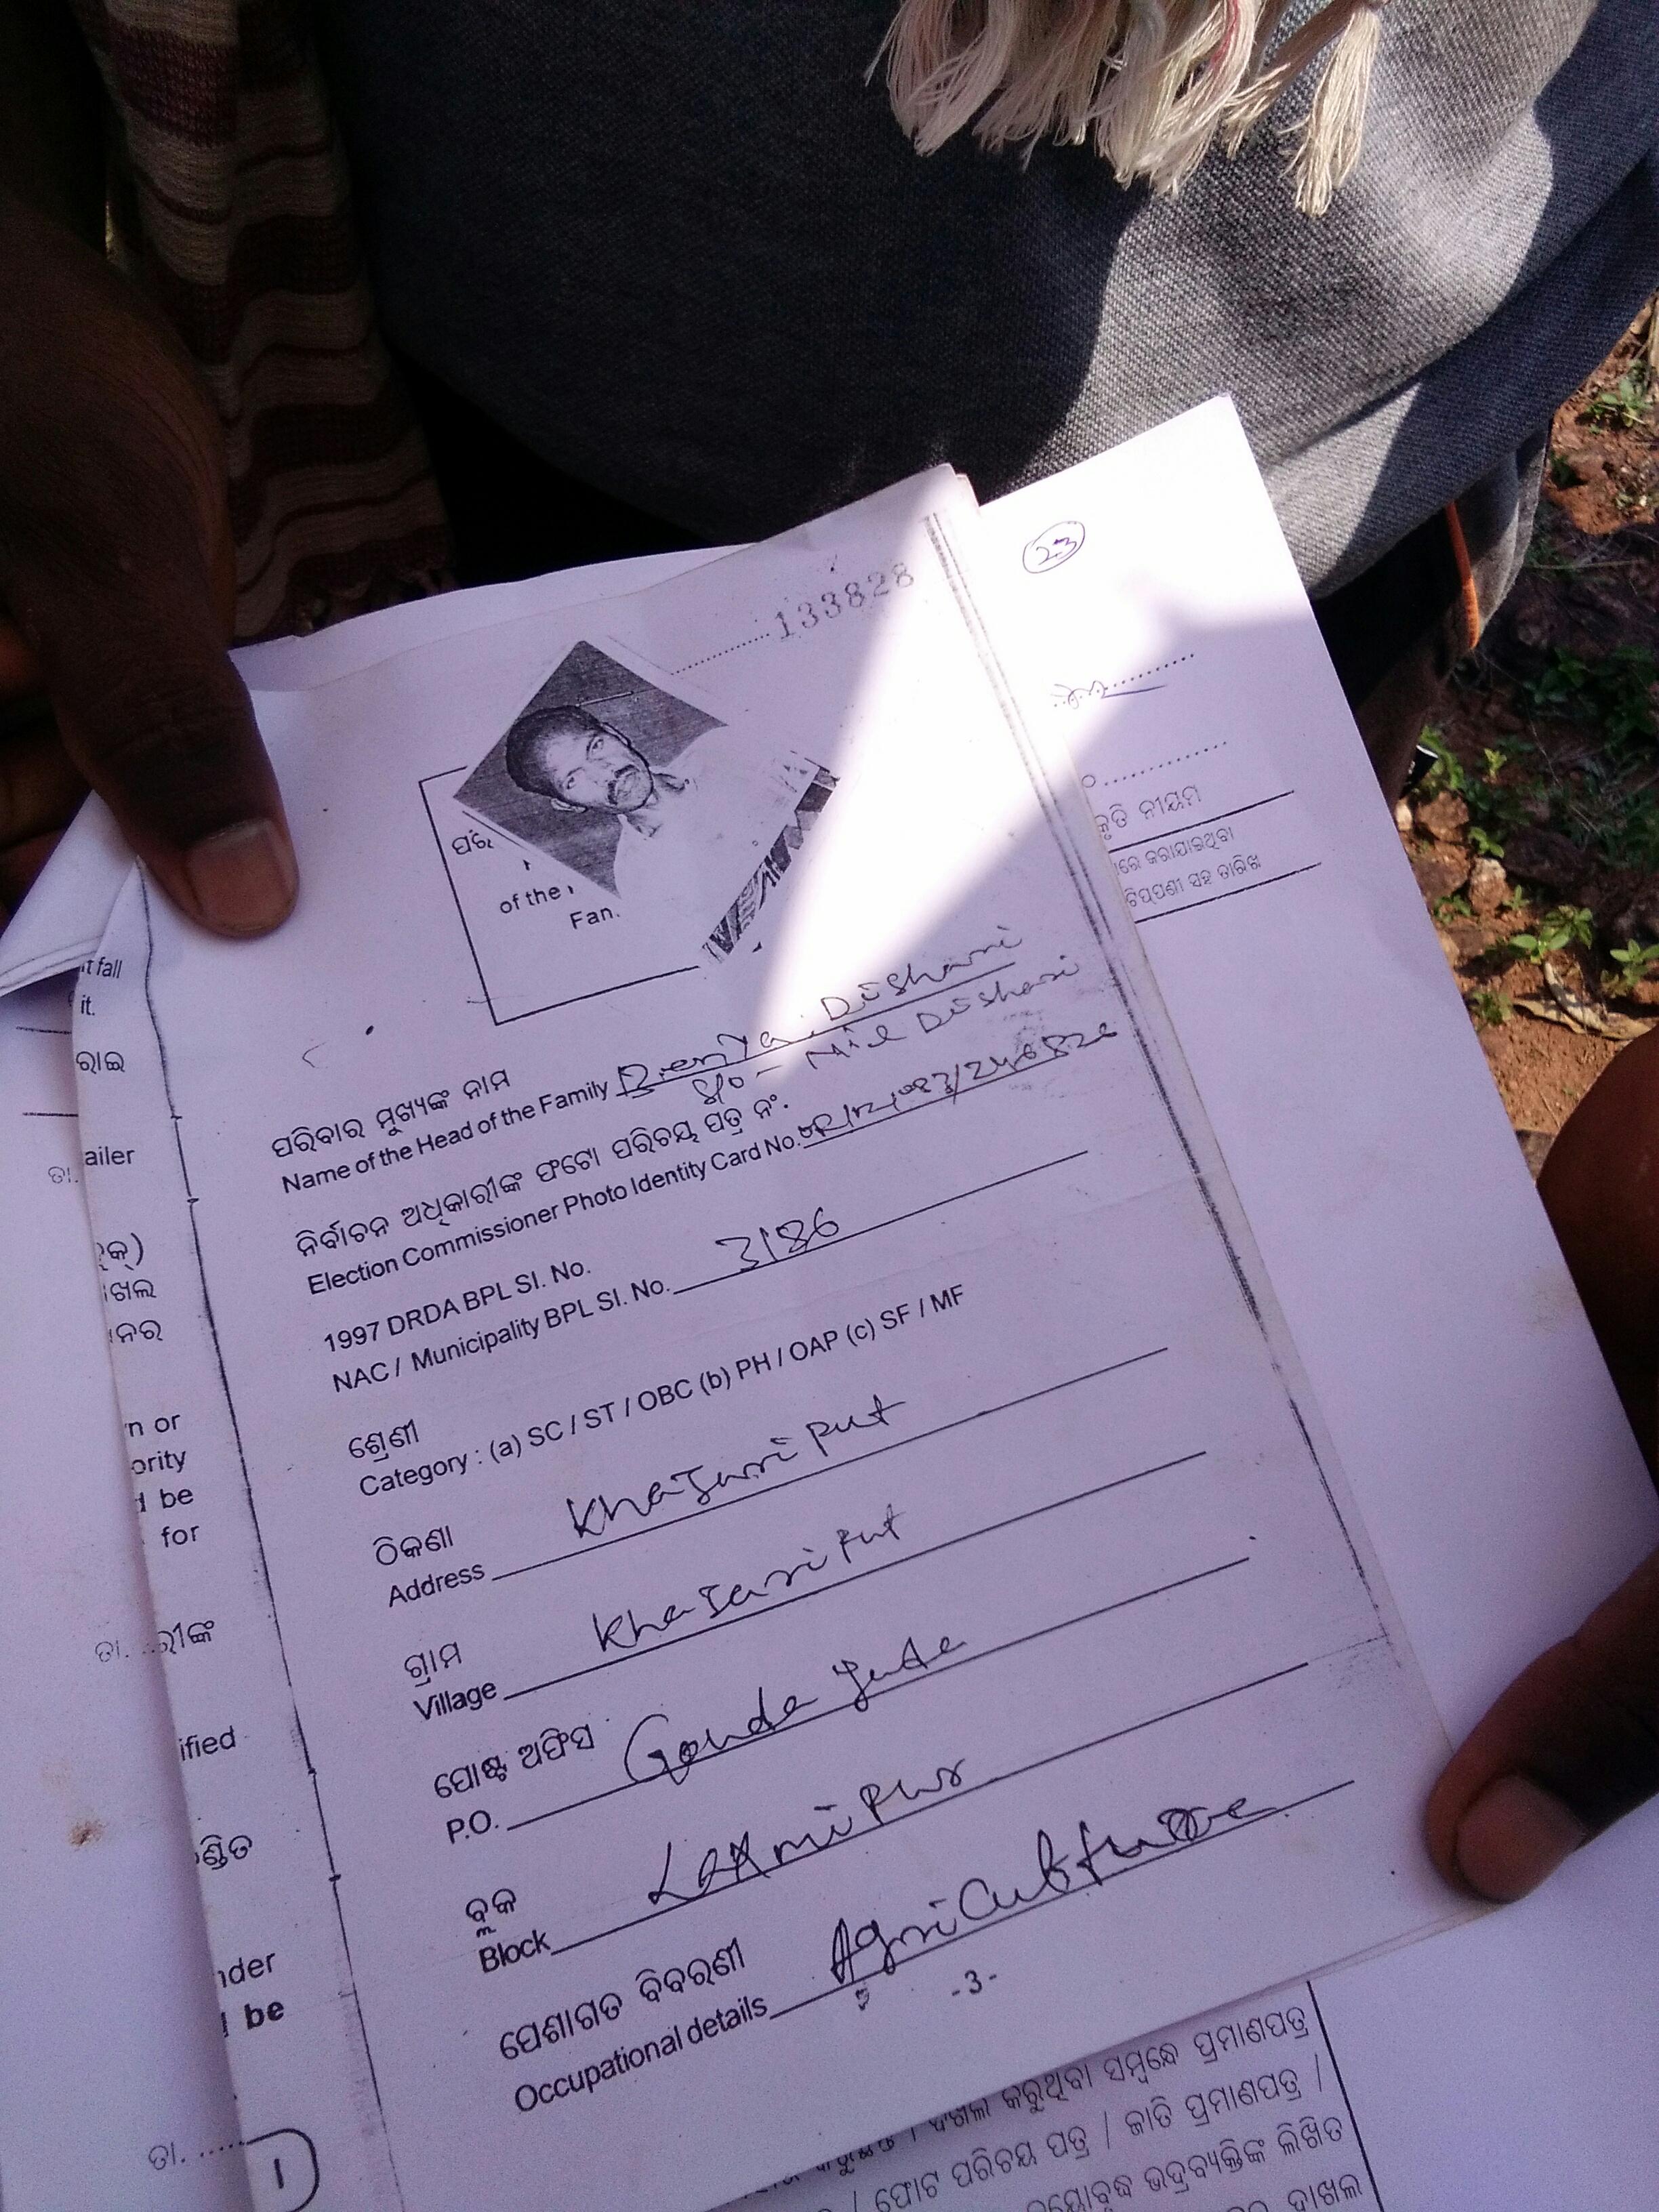 23
133828
ପରି
of the
Fan.
କୃତି ନୀୟମ
ରେ କରାଯାଇଥିବା
ଟିପ୍ପଣୀ ସହ ତାରିଖ
ପରିବାର ମୁଖ୍ୟଙ୍କ ନାମ
Name of the Head of the Family Dishari
S/o - Nil Dishari
ନିର୍ବାଚନ ଅଧିକାରୀଙ୍କ ଫଟୋ ପରିଚୟ ପତ୍ର ନଂ.
Election Commissioner Photo Identity Card No.
1997 DRDA BPL Sl. No.
NAC / Municipality BPL Sl. No. 3186
ଶ୍ରେଣୀ
Category : (a) SC / ST / OBC (b) PH / OAP (c) SF / MF
ଠିକଣା
Address Khajuriput
ଗ୍ରାମ
Village Khajuriput
ପୋଷ୍ଟ ଅଫିସ
P.O.
ବ୍ଲକ
Block Laxmipur
ପେଶାଗତ ବିବରଣୀ
Occupational details Agriculture
-3-
t fall
it.
ରାଇ
ailer
ଖଲ
ନର
n or
ority
be
for
ରୀଙ୍କ
ified
ଣ୍ଡିତ
nder
be
ତା. ......
I
ଦାଖଲ କରୁଥିବା ସମ୍ବନ୍ଧେ ପ୍ରମାଣପତ୍ର
/ ଫୋଟ ପରିଚୟ ପତ୍ର / ଜାତି ପ୍ରମାଣପତ୍ର /
ବୟୋବୃଦ୍ଧ ଭଦ୍ରବ୍ୟକ୍ତିଙ୍କ ଲିଖିତ
ଦାଖଲ